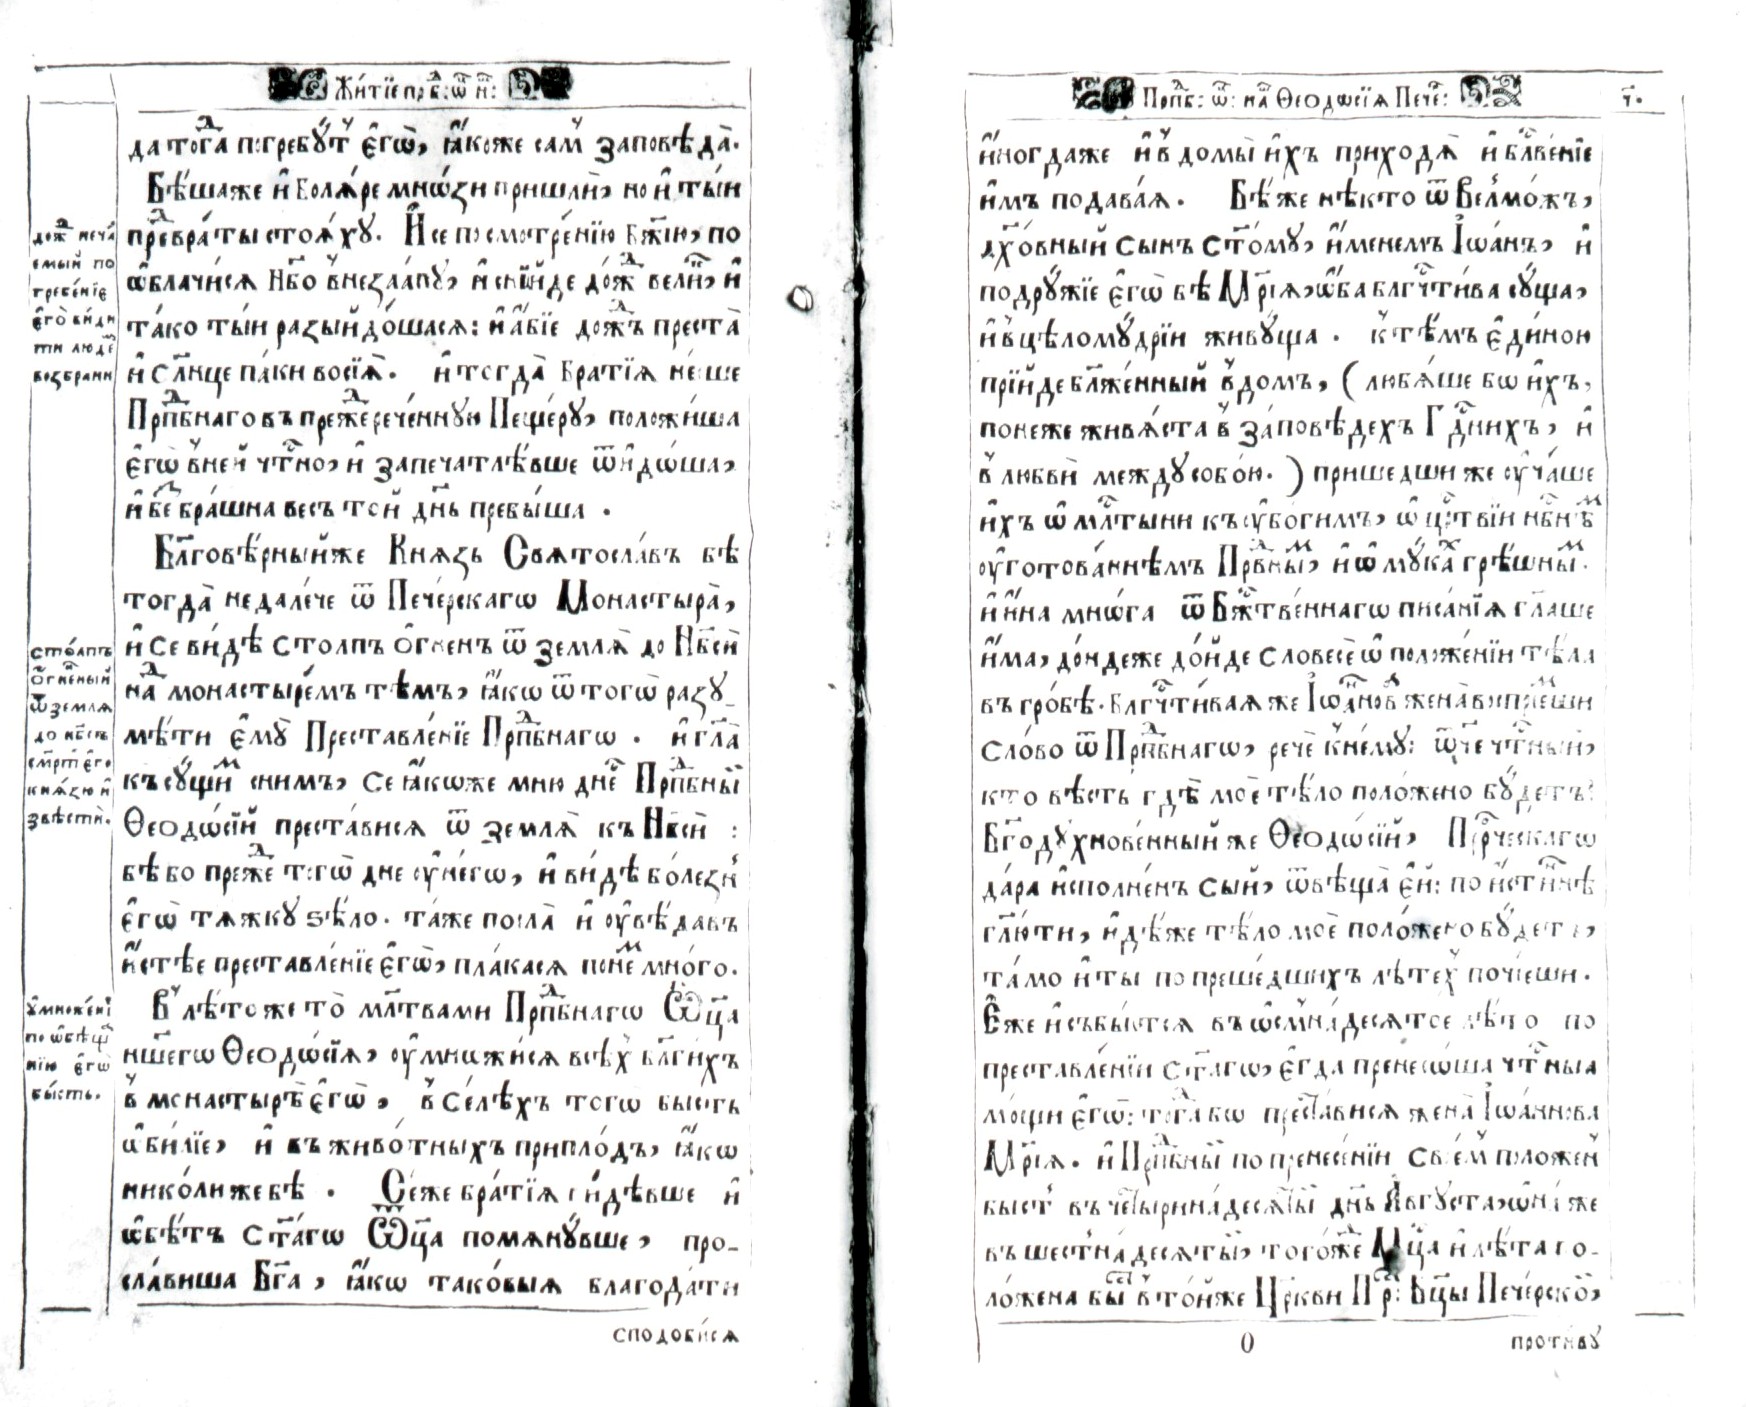 Житїе прпⷣб: ѿ н҃:
да тогⷣа погребꙋ́тъ є҆гѡ̀, ꙗ҆́коже самъ заповѣ́да.
Бѣ́шаже и҆ Болѧ́ре мнѡ́зи пришлѝ, но и҆ ты́и
преⷣ врата́ты стоѧ́хꙋ. И҆ се по смотре́нїю Бж҃їю, по
ѡ҆блачи́сѧ Нб҃о внеза́апꙋ, и҆ сни́йде до́жⷣ вели́й, и҆
та́ко ты́и разыйдо́шасѧ: и҆ а҆́бїе дождь преста̀
и҆ Сл҃нце па́ки восїѧ̀. и҆ тогда̀ Братїѧ не́сше
Прпⷣбнаго въ прежⷣерече́ннꙋю Пеще́рꙋ, положи́ша
є҆гѡ̀ в ней чⷭ҇тно, и҆ запечатлѣ́вше ѿидо́ша,
и҆ беⷥ бра́шна весь той дн҃ь превы́ша.
Бл҃говѣ́рныйже Кнѧзь Свѧтосла́въ бѣ
тогда̀ недале́че ѿ Пече́рскагѡ Монастырѧ̀,
и҆ се ви́дѣ столпъ о҆́гненъ ѿ землѧ̀ до Нб҃сѝ
наⷣ монастыре́мъ тѣмъ, ꙗ҆́кѡ ѿ тогѡ̀ разꙋ_
мѣ́ти є҆мꙋ̀ Преставле́нїе Прпⷣбнагѡ. и҆ гл҃а
къ сꙋ́щиⷨ с нимъ, се ꙗ҆́кѡже мню дне́сь Прпⷣбный
Ѳеодѡ́сїй преста́висѧ ѿ землѧ̀ къ Нб҃сѝ:
бѣ бо прежⷣе тогѡ̀ дне ᲂу҆ негѡ, и҆ ви́дѣ болезнь
є҆гѡ̀ тѧжкꙋ ѕѣ́ло. та́же посла̀ и҆ ᲂу҆вѣ́давъ
и҆́стѣе преставле́нїе є҆гѡ̀, пла́касѧ по неⷨ мно́го.
В лѣ́то же то̀ мл҃твами Прпⷣбнагѡ Ѿц҃а
нш҃егѡ Ѳеодѡ́сїѧ, ᲂу҆мнѡжи́сѧ всѣ́хъ бл҃ги́хъ
в монастырѣ̀ є҆гѡ̀, в се́лѣхъ тогѡ бысть
ѡ҆би́лїе, и҆ въ живо́тныхъ припло́дъ, ꙗ҆́кѡ
николи же бѣ. Се́же бра́тїѧ ви́дѣвше и҆
ѡ҆бѣ́тъ ст҃а́гѡ Ѿц҃а помѧнꙋ́вше, про_
сла́виша Бг҃а, ꙗ҆́кѡ тако́выѧ благода́ти
сподоби́сѧ
дожⷣ неча́
емый по
гребе́нїе
є҆го̀ ви́ди
ти люде́
возбрани
столпъ
о҆́гненый
ѿ землѧ
до нб҃съ
смрⷮть є҆го
кнѧ́зю и҆
звѣстѝ.
ᲂу҆множе́нї
по ѡ҆бѣщⷶ
нїю є҆гѡ̀
бы́сть.
Прпⷣб: ѿ: на Ѳеодѡсїѧ Пече:
г҃.
и҆́ногдаже и҆ в домы̀ и҆́хъ приходѧ̀ и҆ блⷭ҇ве́нїе
и҆̀мъ подава́ѧ. Бѣ́ же нѣ́кто ѿ Велмо́жъ,
дх҃о́вный сынъ ст҃о́мꙋ, и҆́менемъ І҆ѡа́нъ, и҆
подрꙋ́жїе є҆гѡ̀ бѣ Мр҃їѧ, ѡ҆́ба блгⷭ҇чти́ва сꙋ́ща,
и҆ в цѣломꙋ́дрїи живꙋ́ща. к тѣ́мъ є҆ди́ною
прїи́де бл҃же́нный в домъ, (любѧ́ше бѡ и҆́хъ,
понеже живѧ́ста в за́повѣдехъ Гдⷭ҇нихъ, и҆
в любвѝ междꙋ собо́ю.) прише́дши же ᲂу҆ча́ше
и҆́хъ ѡ҆ млⷭ҇тыни къ ᲂу҆бо́гимъ, ѡ҆ црⷭ҇твїи нб҃нѣⷨ
ᲂу҆гото́ваннѣмъ Прⷣвныⷨ, и҆ ѡ҆ мꙋ́кахъ грѣ́шныⷨ.
и҆ и҆́на мнѡ́га ѿ Бжⷭ҇тве́ннагѡ писа́нїѧ гл҃аше
и҆́ма, до́ндеже до́йде словесѐ ѡ҆ положе́нїи тѣ́ла
въ гро́бѣ. Блгⷭ҇чти́ваѧ же І҆ѡа́нова жена̀ воспрїе́мши
сло́во ѿ Прпⷣбнагѡ, рече̂ к немꙋ̀: ѿче чⷭ҇тны́й,
кто вѣ́сть гдѣ̀ моѐ тѣ́ло поло́жено бꙋ́детъ:
Бг҃одꙋ́хнове́нный же Ѳеодѡ́сїй, Прⷪ҇ро́ческагѡ
да́ра и҆спо́лненъ сый, ѿвѣща̀ є҆́й: по и҆́стиннѣ
гл҃ю ти, и҆дѣ́же тѣ́ло моѐ поло́жено бꙋ́детъ,
та́мо и҆ ты по преше́дшихъ лѣ́техъ почі́еши.
Є҆́же и҆ събы́стсѧ въ ѡ҆смна́десѧтое лѣ́то по
преставле́нїи ст҃а́гѡ, є҆гда пренесо́ша чⷭ҇тныа
мо́щи є҆гѡ̀: тогⷣа бѡ преста́висѧ жена̀ І҆ѡа́ннова
Мр҃їѧ. и҆ Прпⷣбный по пренесе́нїи свое́мъ положе́н
бысть въ четы́ринадесѧтый дн҃ь А҆́вгꙋста, ѡ҆на́ же
въ шестна́десѧтый, того́же Мц҃а и҆ лѣ́та по_
ло́жена бысть в то́йже Цр҃кви Прⷭ҇: Бц҃ы Пече́рской,
О
проти́вꙋ